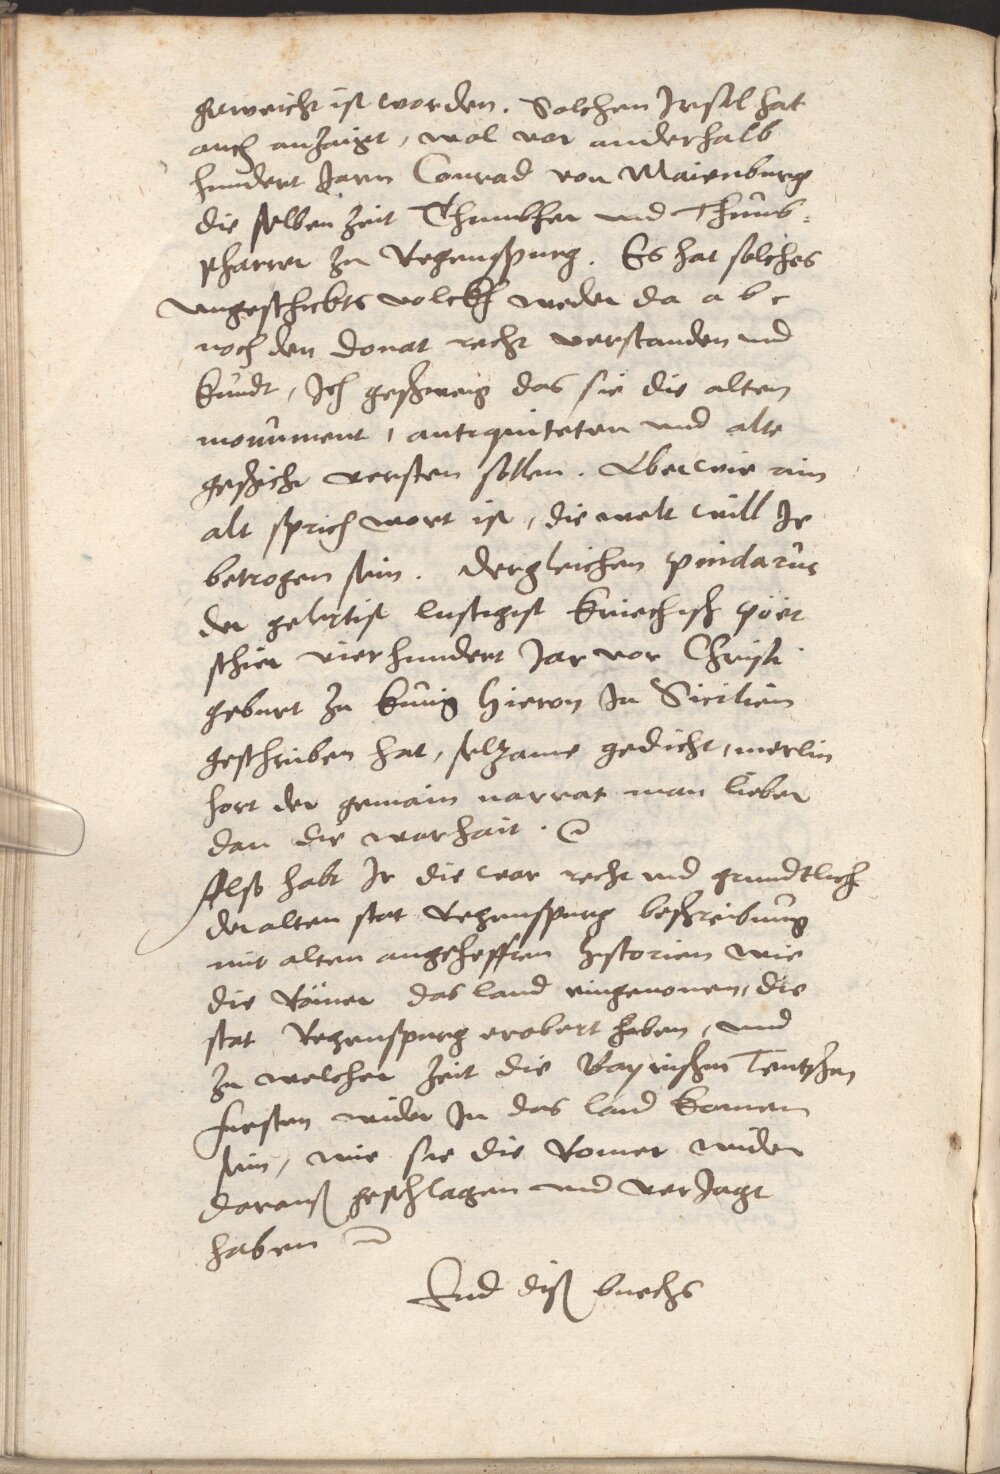 geweicht ist worden. Solchen Irsal hat
auch anzaigt, wol vor anderhalb
hundert Jarn Conrad von Maienburg
die selben zeit Thumbher und Thumb-
pharrer zu Regenspurg. Es hat solches
ungeschickts volckh weder da a b c
noch den donat recht verstanden und
kundt, Ich geschweig das sie die alten
monument, antiquiteten und alte
geschicht versten sollen. Aber wie ain
alt sprichwort ist, die welt will Ie
betrogen sein. dergleichen pindarus
der gelertist lustigist kriechisch poet
schier vierhundert Jar vor Christi
geburt zu kunig Hieron In Sicilien
geschriben hat, selzame gedicht, merlin
hort der gemain narrat man lieber
dan die warhait.
Also habt Ir die war recht und grundtlich
der alten stat Regenspurg beschreibung
mit alten angehefften historien wie
die Römer das land eingenomen, die
stat Regenspurg erobert haben, und
zu welcher zeit die Bayrischen Teutschen
fursten wider In das land komen
sein, wie sie die Romer wider
darauß geschlagen und verJagt
haben
End diß buechs